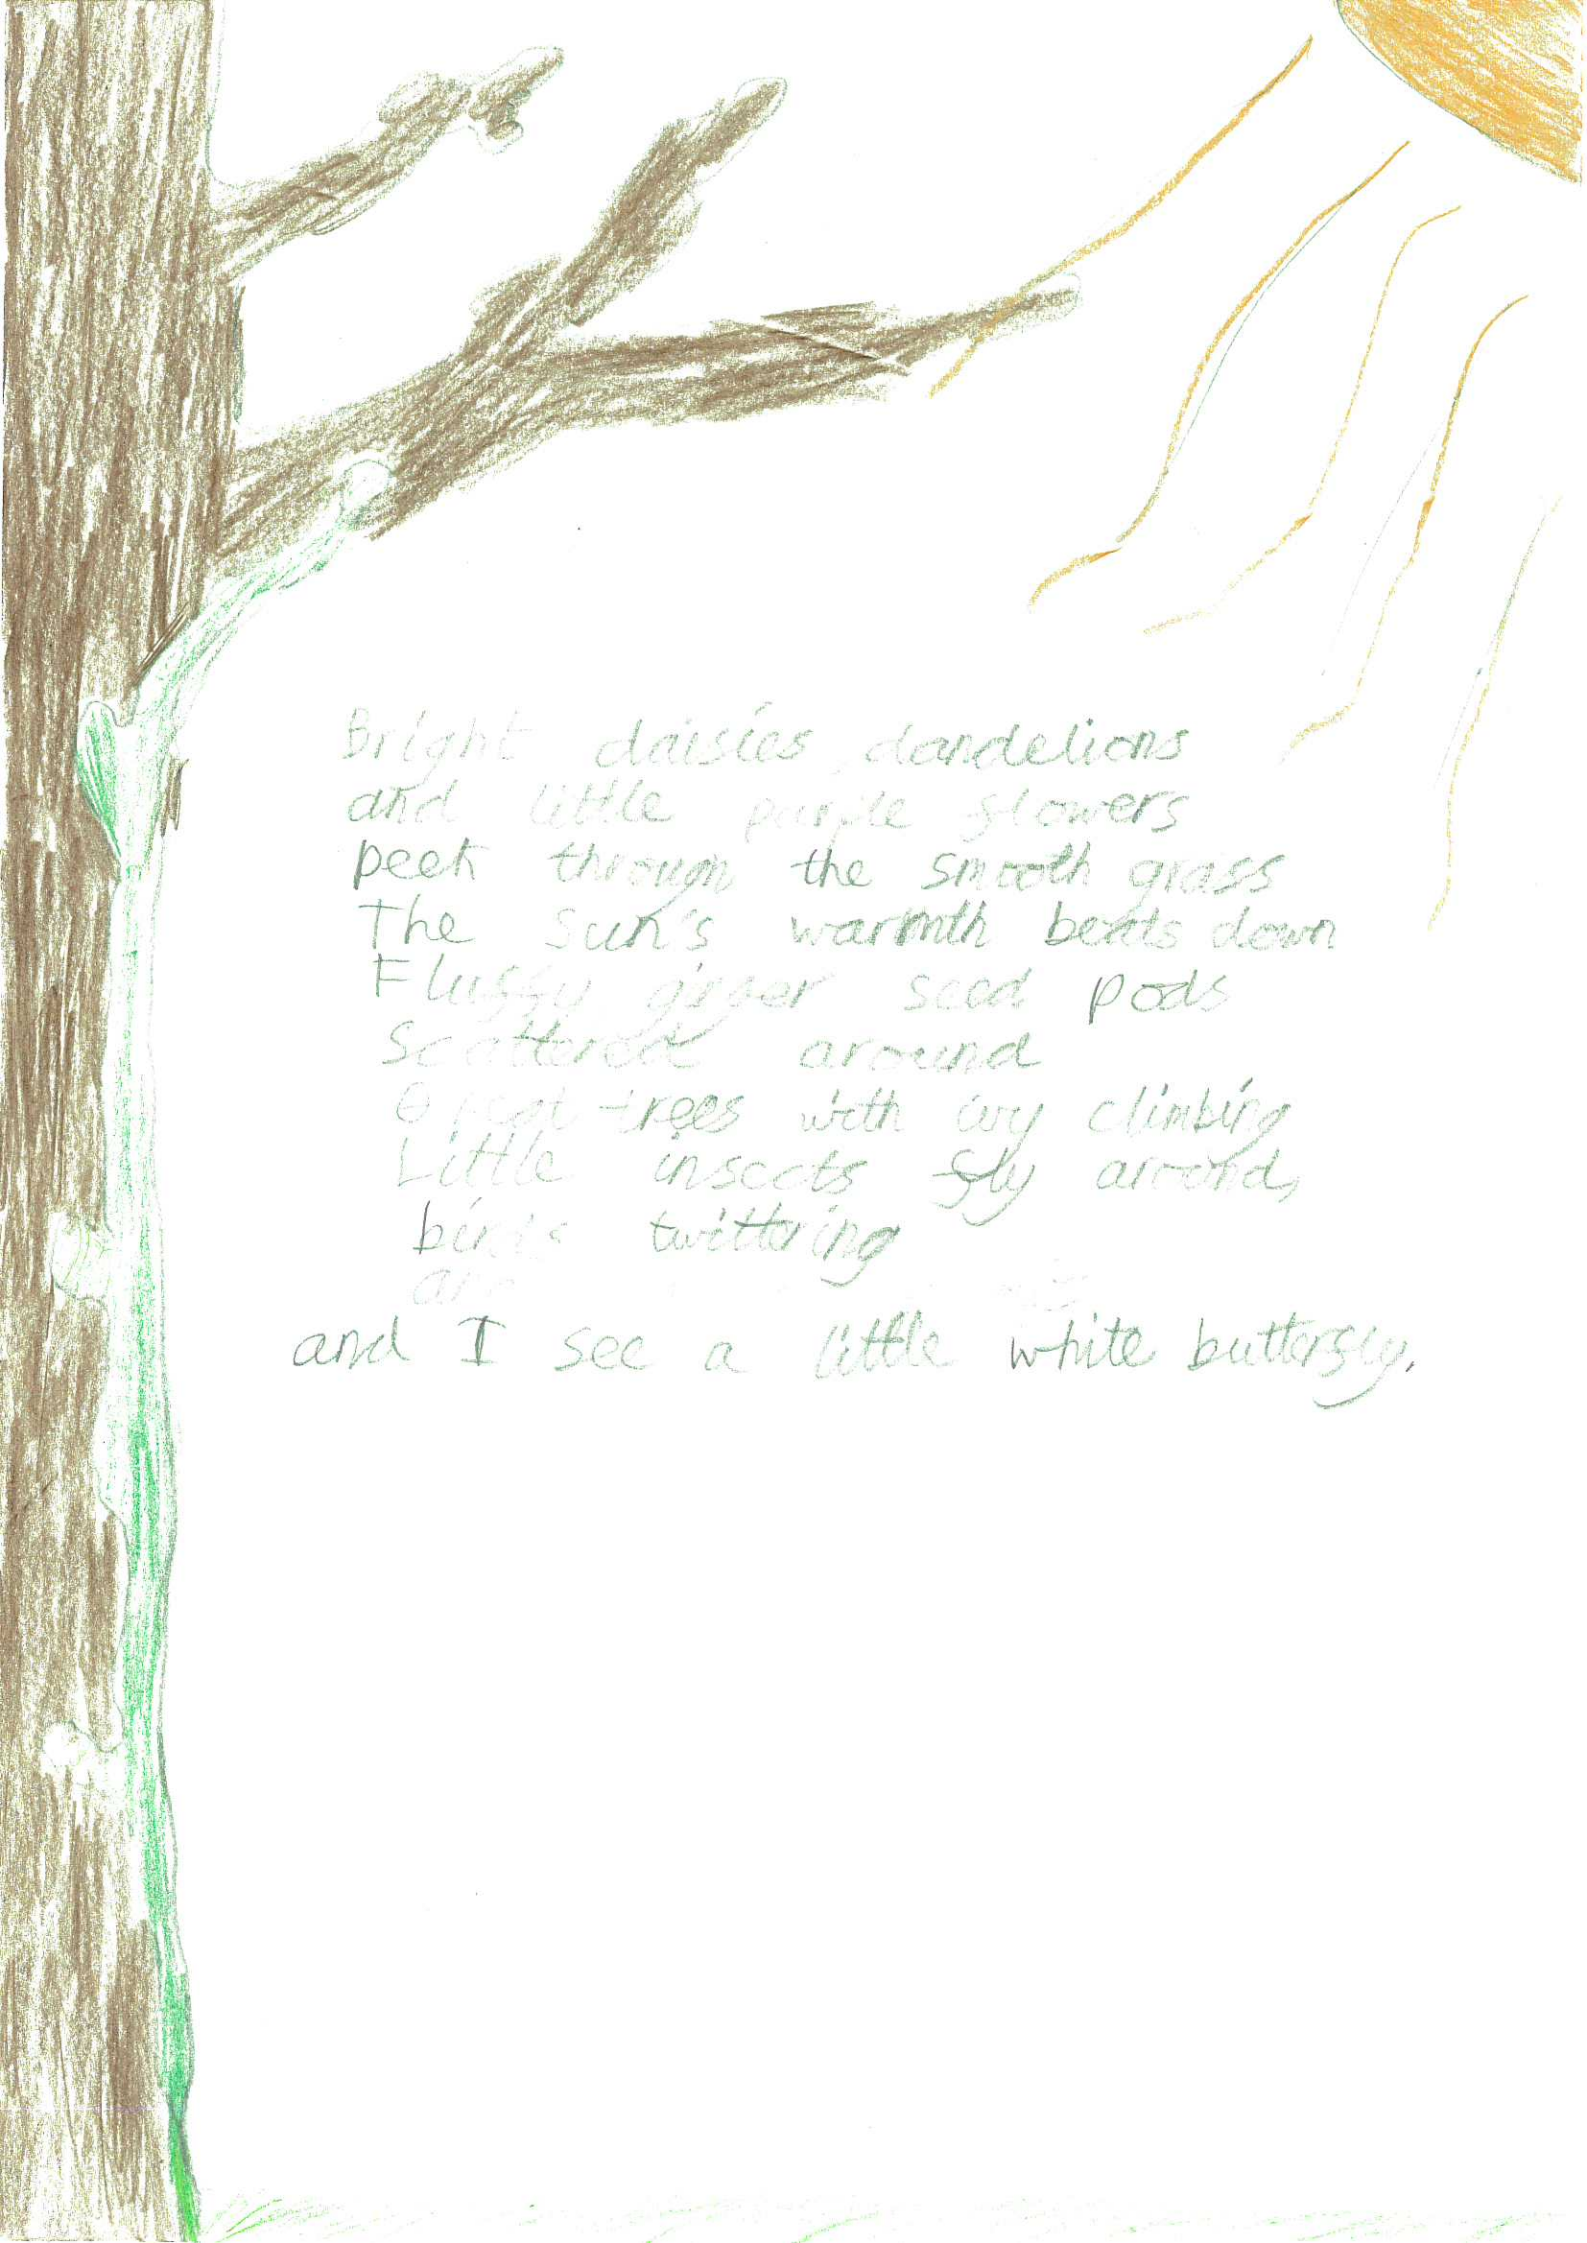 Bright daisies, dandelions
and little purple flowers
peek through the smooth grass
The sun's warmth beats down
Fluffy ginger seed pods
Scattered around
Great trees with ivy climbing
Little insects fly around,
birds twittering
and I see a little white butterfly.